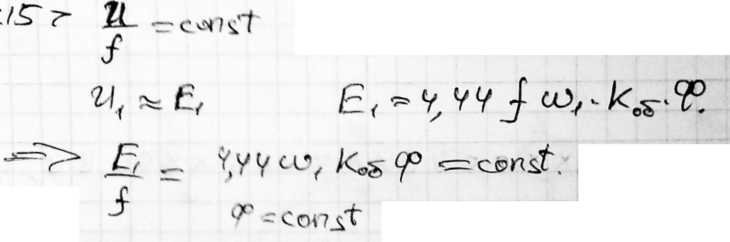 :15> U/f = const
U₁ ≈ E₁ E₁ = 4,44 f ω₁ · Kоб · φ.
=> E₁/f = 4,44 ω₁ Kоб φ = const.
φ = const